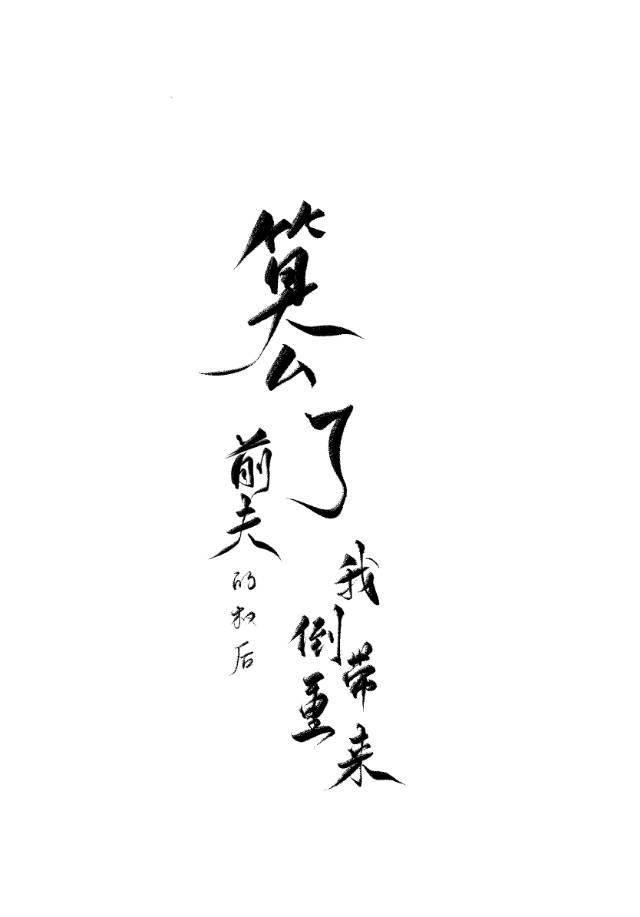 篡了
前夫的权后
我倒带重来